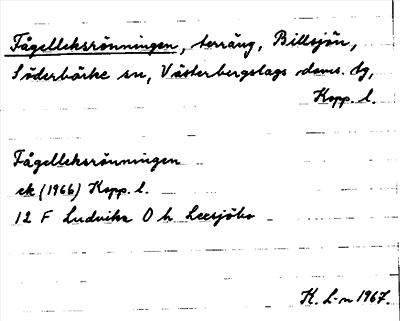 Fågelleksrönningen, terräng, Billsjön,
Söderbärke sn, Västerbergslags doms. dg,
Kopp. l.
Fågelleksrönningen
ek (1966) Kopp. l.
12 F Ludvika O h Leesjöbo
K. L-m 1967.